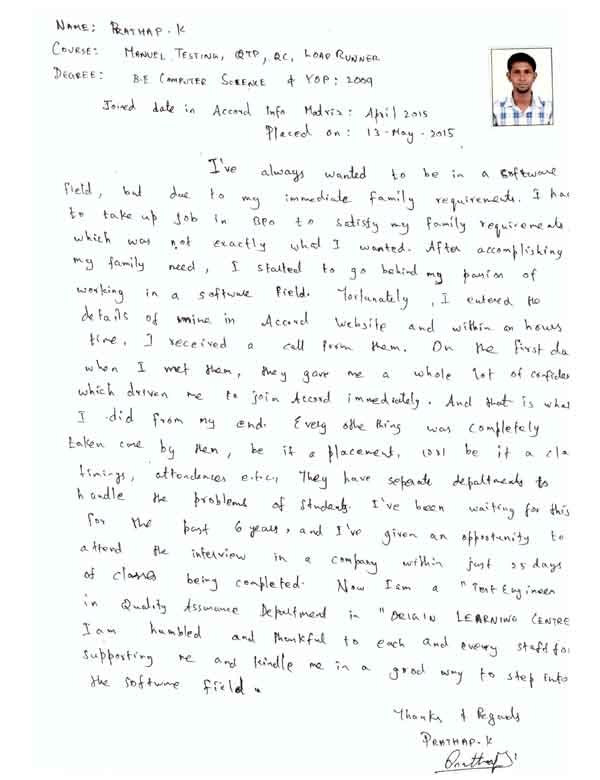 NAME: PRATHAP.K
COURSE: MANUEL TESTING, QTP, QC, LOAD RUNNER
DEGREE: B.E COMPUTER SCEENCE & YOP: 2009
Joined date in Accord Info Matrix: April 2015
Placed on: 13-May-2015
I've always wanted to be in a software
field, but due to my immediate family requirements. I had
to take up job in BPO to satisfy my family requirements
which was not exactly what I wanted. After accomplishing
my family need, I started to go behind my passion of
working in a software field. Fortunately, I entered the
details of mine in Accord website and within an hours
time, I received a call form them. On the first da
when I met them, they gave me a whole lot of confiden
which driven me to join Accord immediately. And that is what
I did from my end. Every other thing was completely
taken care by them, be it a placement, be it a cla
timings, attendences e.t.c., They have separate departments to
handle the problems of students. I've been waiting for this
for the past 6 years, and I've given an opportunity to
attend the interview in a company within just 25 days
of classes being completed. Now I am a "Test Engineer
in Quality Assurance Department in "ORIGIN LEARNING CENTRE
I am humbled and thankful to each and every staff for
supporting me and kindle me in a good way to step into
the software field.
Thanks & Regards
PRATHAP.K
Prathap